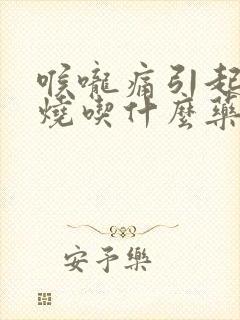 喉嚨痛引起
燒喫什麼藥
安予樂